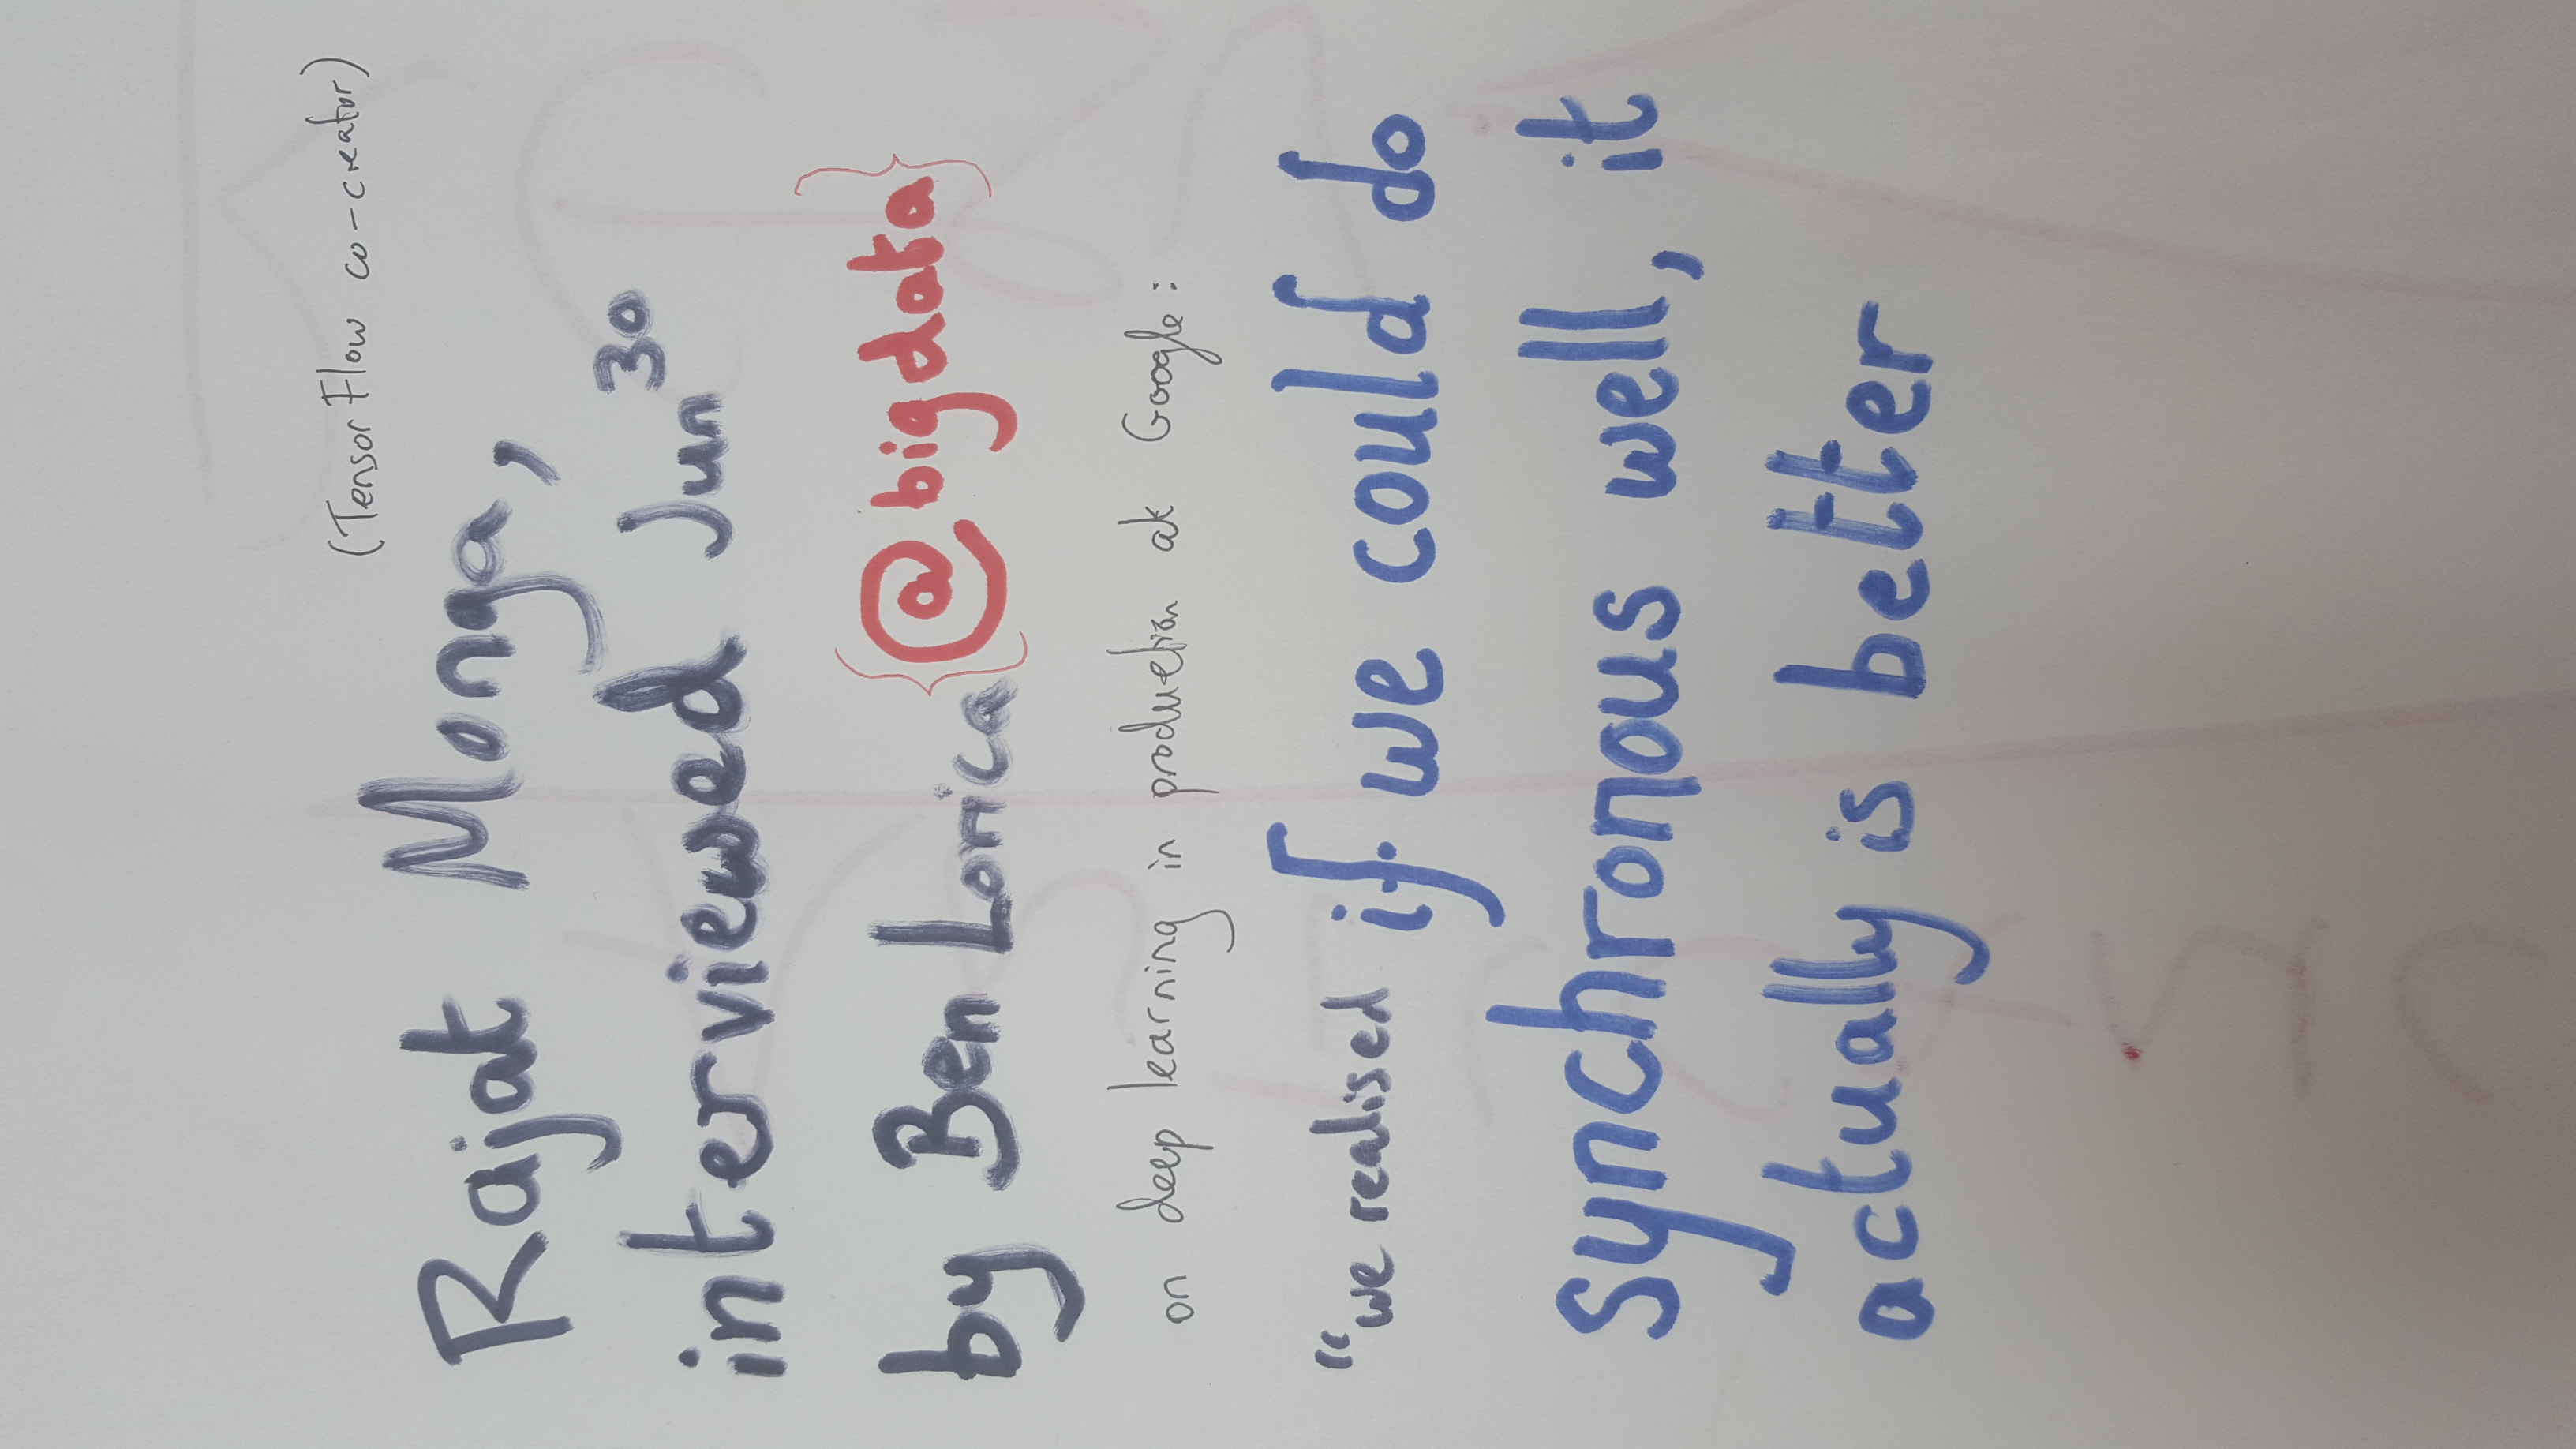 (TensorFlow co-creator)
Rajat Monga,
interviewed Jun 30
by Ben Lorica {@bigdata}
on deep learning in production at Google:
“we realised if we could do
synchronous well, it
actually is better